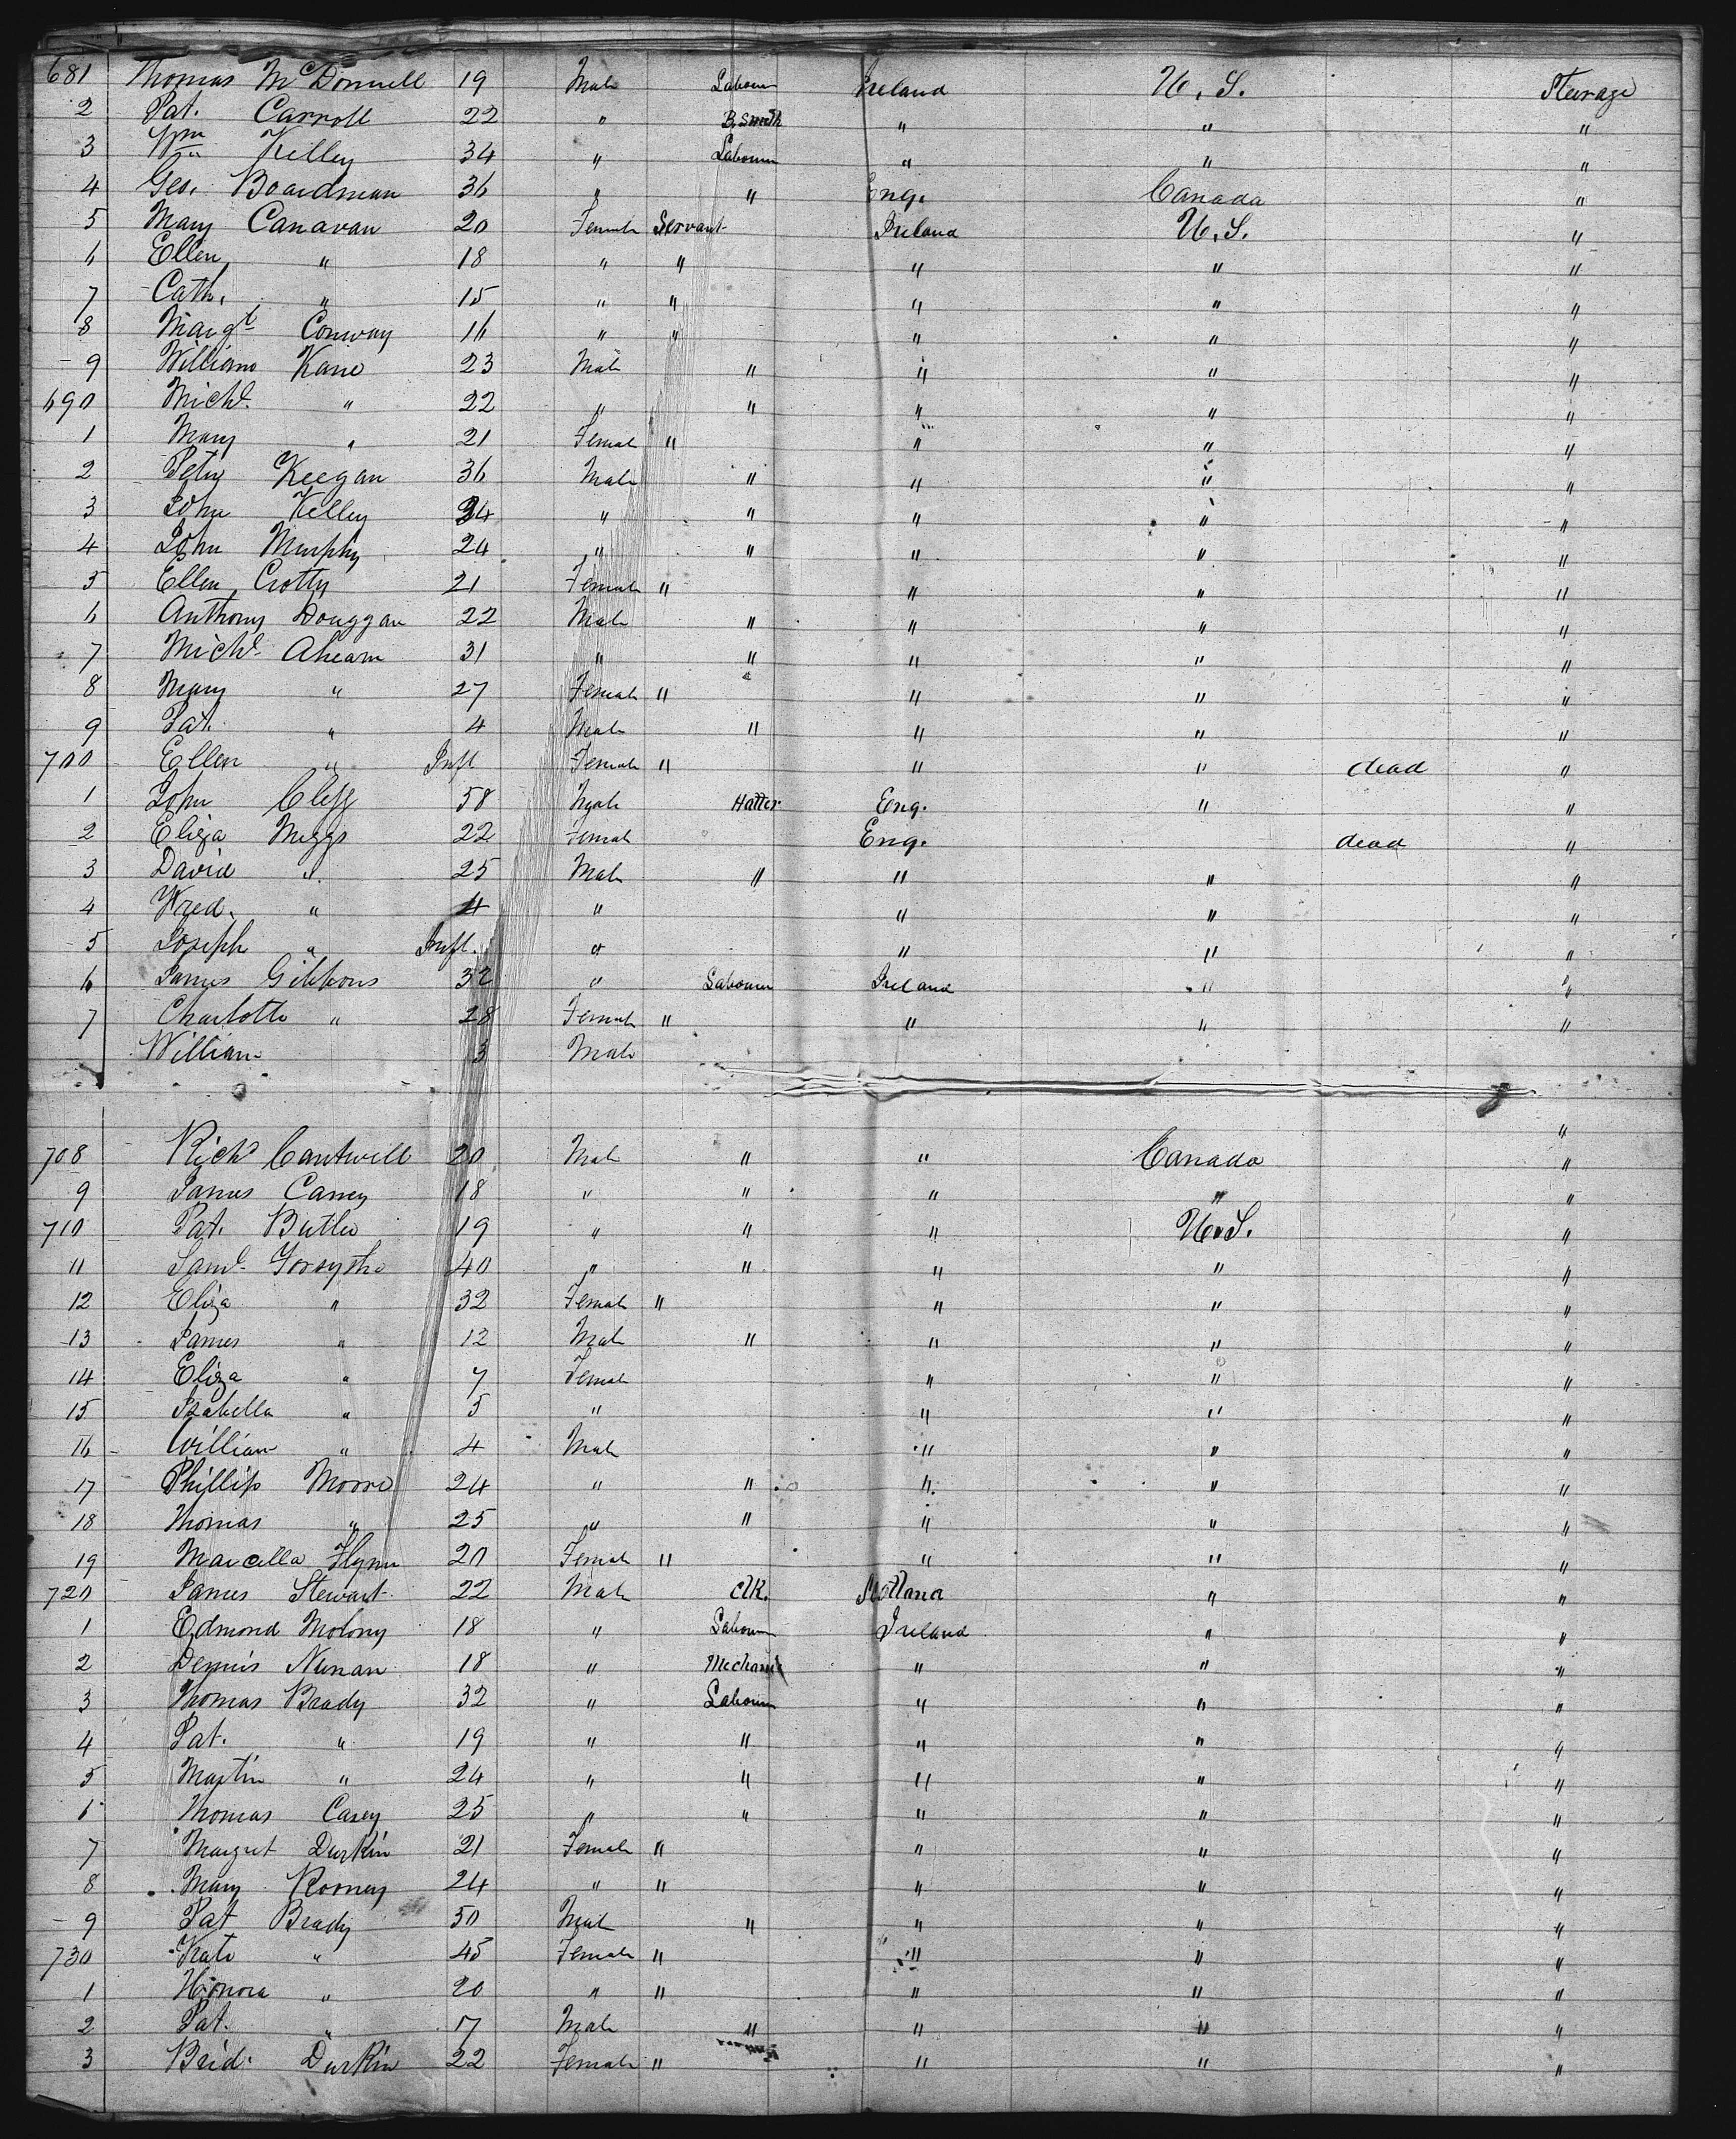 681 Thomas McDonnell 19 Male Labourer Ireland U.S. Steerage
2 Pat. Carroll 22 " B. Smith " " "
3 Wm Kelley 34 " Labourer " " "
4 Geo. Boardman 36 " " Eng. Canada "
5 Mary Canavan 20 Female Servant Ireland U.S. "
6 Ellen " 18 " " " " "
7 Cath. " 15 " " " " "
8 Margt Conway 16 " " " " "
9 William Kane 23 Male " " " "
690 Michl. " 22 " " " " "
1 Mary " 21 Female " " " "
2 Peter Keegan 36 Male " " " "
3 John Kelley 34 " " " " "
4 John Murphy 24 " " " " "
5 Ellen Crotty 21 Female " " " "
6 Anthony Douggan 22 Male " " " "
7 Michl. Ahearn 31 " " " " "
8 Mary " 27 Female " " " "
9 Pat. " 4 Male " " " "
700 Ellen " Inft Female " " " dead "
1 John Clegg 58 Male Hatter Eng. " "
2 Eliza Meggs 22 Female Eng. dead "
3 David " 25 Male " " " "
4 Fred. " 4 " " " "
5 Joseph " Inft. " " " "
6 James Gibbons 32 " Labourer Ireland " "
7 Charlotte " 28 Female " " " "
William 3 Male
"
708 Richd Cantwell 20 Male " " Canada "
9 James Carney 18 " " " " "
710 Pat. Butler 19 " " " U.S. "
11 Saml. Forsythe 40 " " " " "
12 Eliza " 32 Female " " " "
13 James " 12 Male " " " "
14 Eliza " 7 Female " " "
15 Isabella " 5 " " " "
16 William " 4 Male " " "
17 Phillip Moore 24 " " " " "
18 Thomas " 25 " " " " "
19 Marcella Flynn 20 Female " " " "
720 James Stewart 22 Male Clk. Scotland " "
1 Edmond Molony 18 " Labourer Ireland " "
2 Dennis Nunan 18 " Mechanic " " "
3 Thomas Brady 32 " Labourer " " "
4 Pat. " 19 " " " " "
5 Martin " 24 " " " " "
6 Thomas Casey 25 " " " " "
7 Margret Durkin 21 Female " " " "
8 Mary Romey 24 " " " " "
9 Pat Brady 50 Male " " " "
730 Kate " 45 Female " " " "
1 Honora " 20 " " " " "
2 Pat. " 17 Male " " " "
3 Brid. Durkin 22 Female " " " "